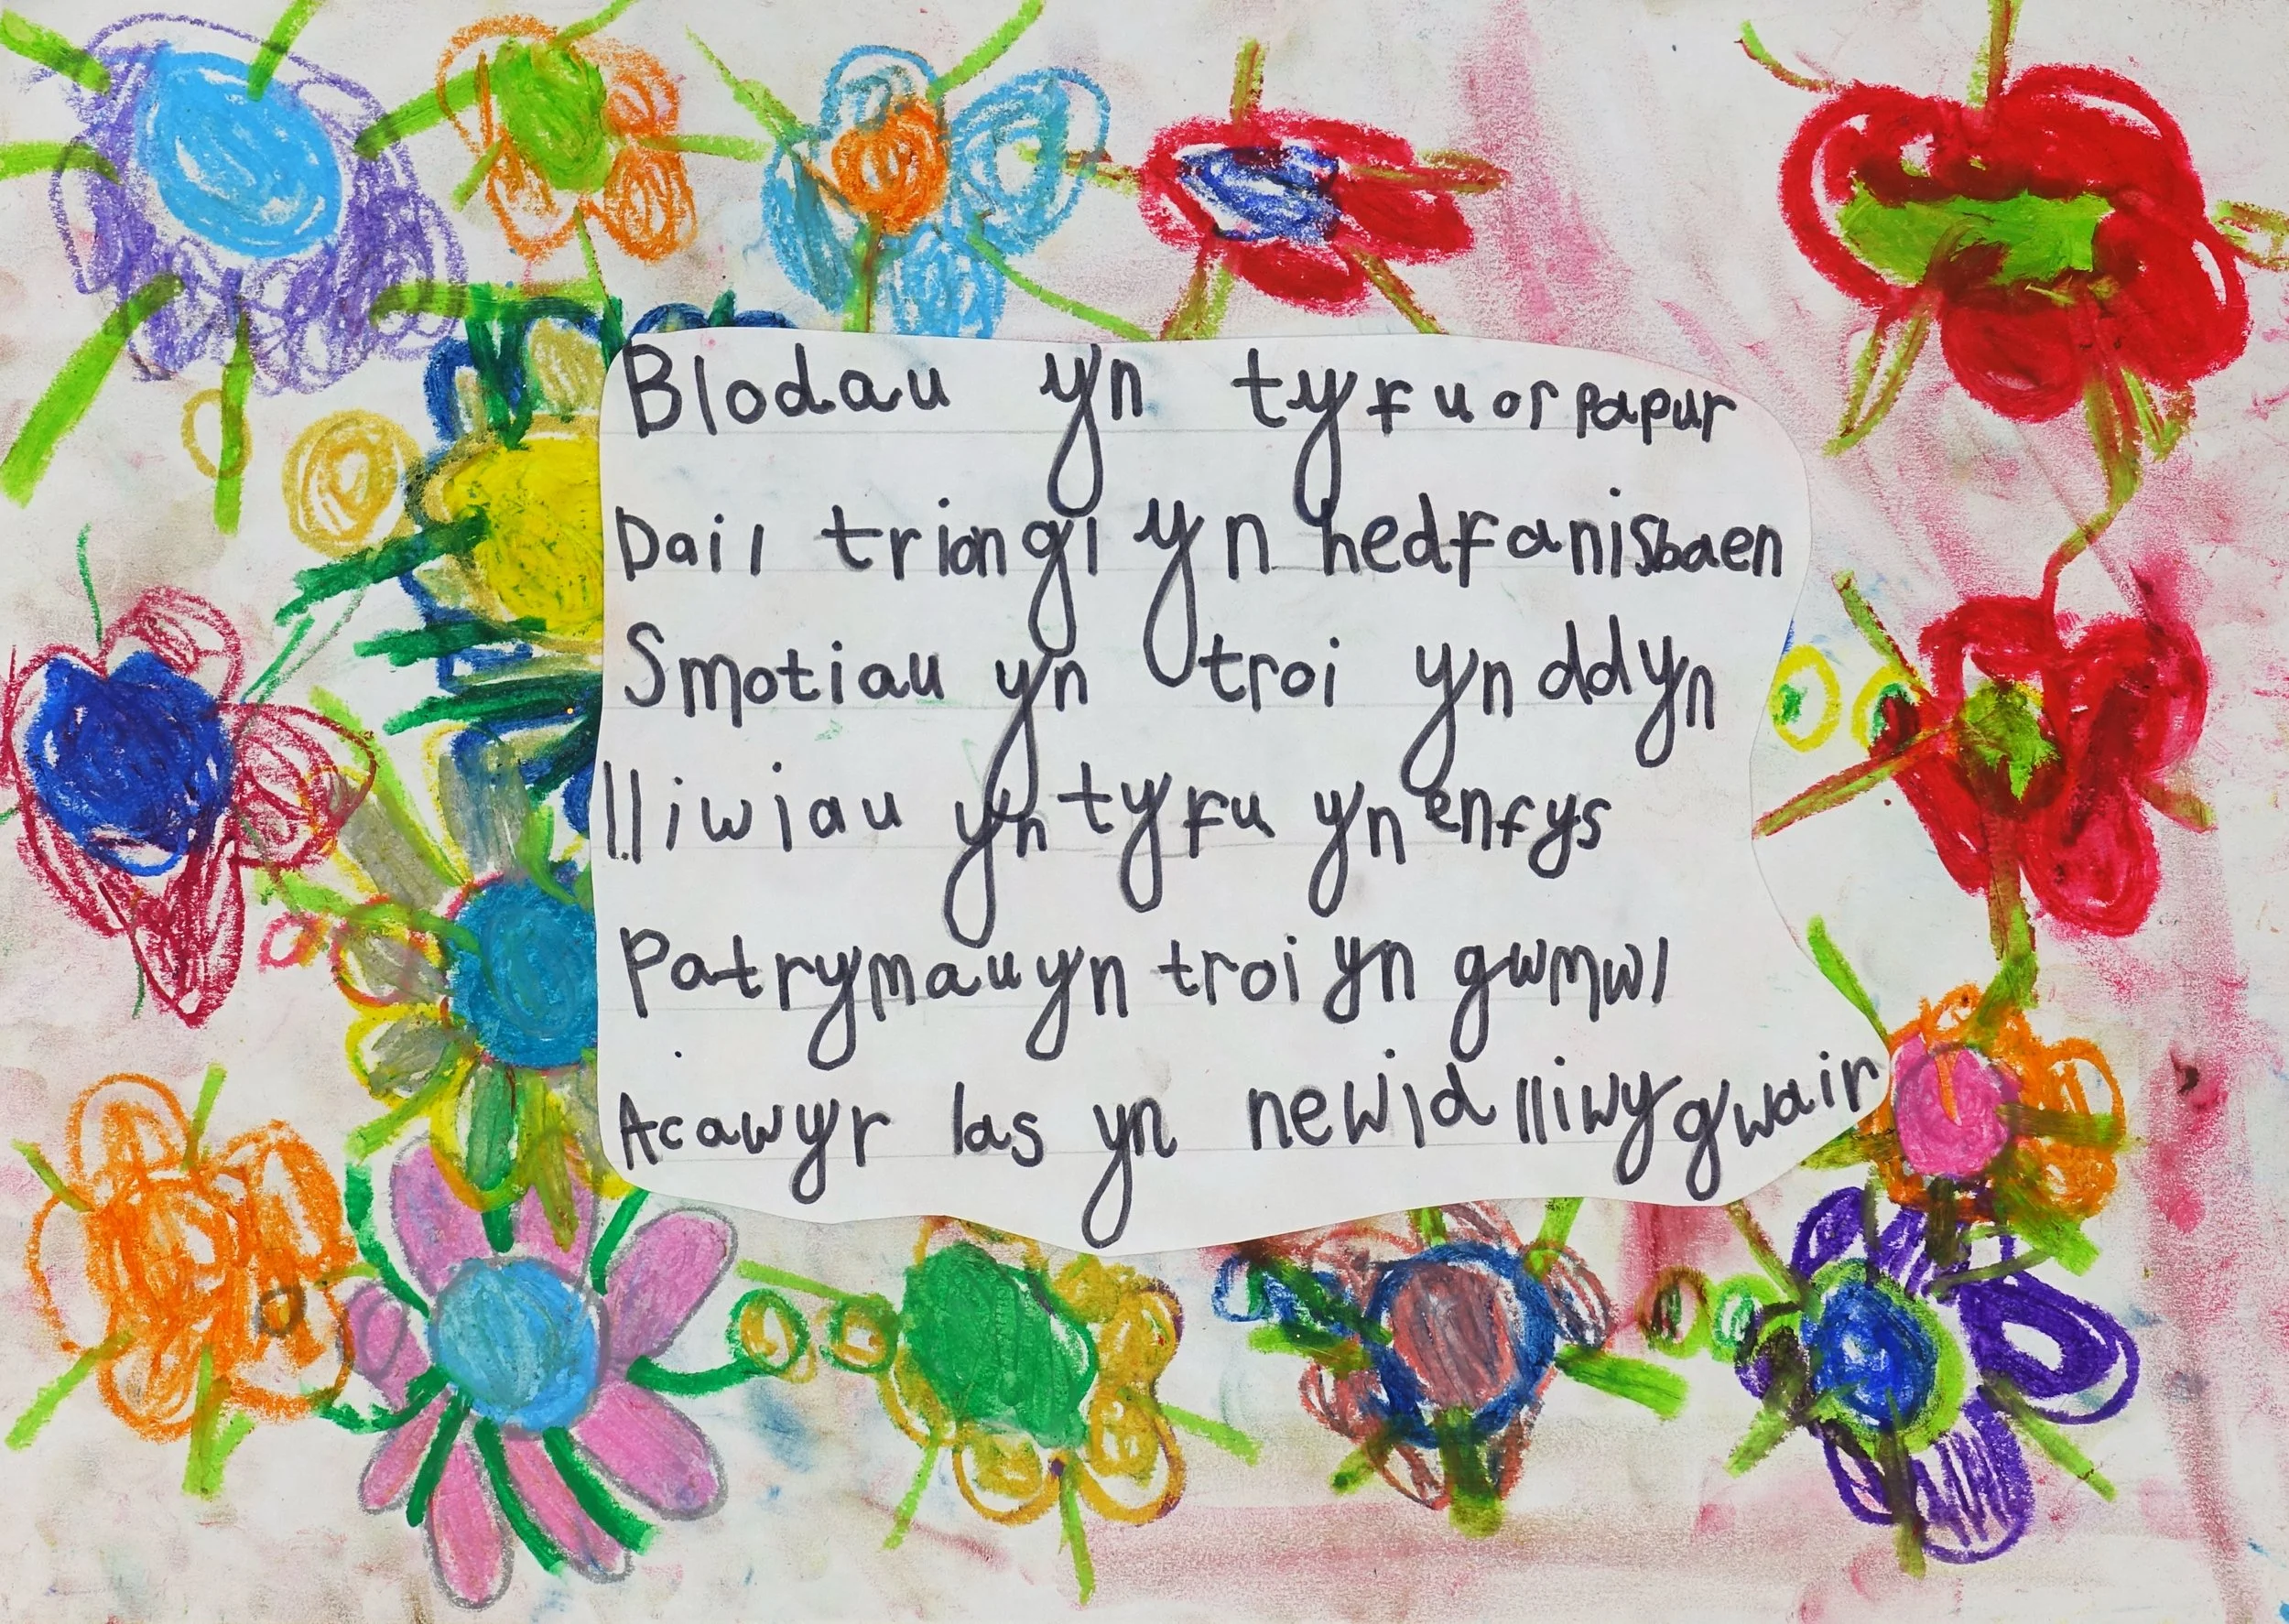 Blodau yn tyfu or papur
Dail triongl yn hedfan isbaen
Smotiau yn troi yn ddyn
lliwiau yn tyfu yn enfys
Patrymau yn troi yn gwmwl
Ac awyr las yn newid lliw y gwair